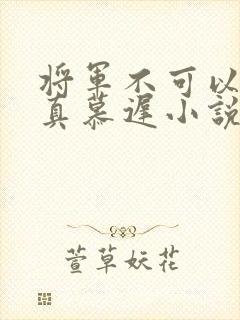 将军不可以
真慕遲小説
萱草妖花